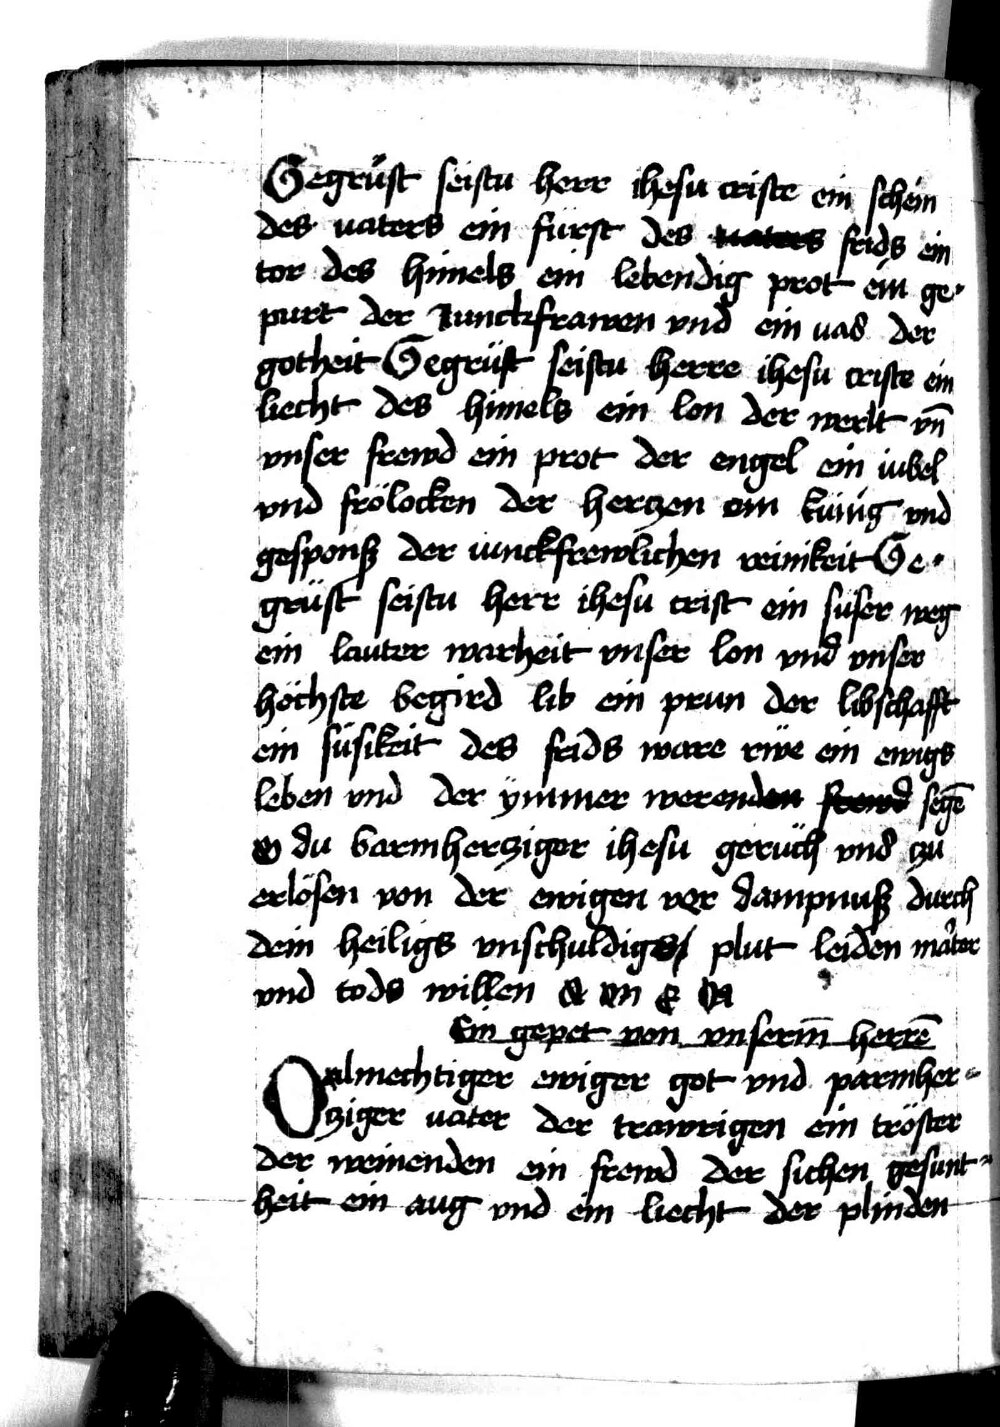 Gegrüst seistu herr ihesu criste ein schein
des vaters ein fürst des vaters frids ein
tor des himels ein lebendig prot ein ge-
purt der Iunckfrawen vnd ein vas der
gotheit Gegrüst seistu herre ihesu criste ein
liecht des himels ein lon der werlt vn̄
vnser frewd ein prot der engel ein iubel
vnd frölocken der hertzen ein künig vnd
gesponß der iunckfrewlichen reinikeit Ge-
grüst seistu herr ihesu crist ein suser weg
ein lauter warheit vnser lon vnd vnser
höchste begird lib ein prun der libschafft
ein süsikeit des frids ware rwe ein ewigs
leben vnd der ymmer werenden frewd segē
O du barmhertziger ihesu gerüch vnd tzu
erlösen von der ewigen ver dampnuß durch
dein heiligs vnschuldigs plut leiden marter
vnd tods willen
Ein gepet von vnserm̄ herrē
O almechtiger ewiger got vnd parmher-
tziger vater der trawrigen ein tröster
der weinenden ein frewd der sichen gesunt-
heit ein aug vnd ein liecht der plinden